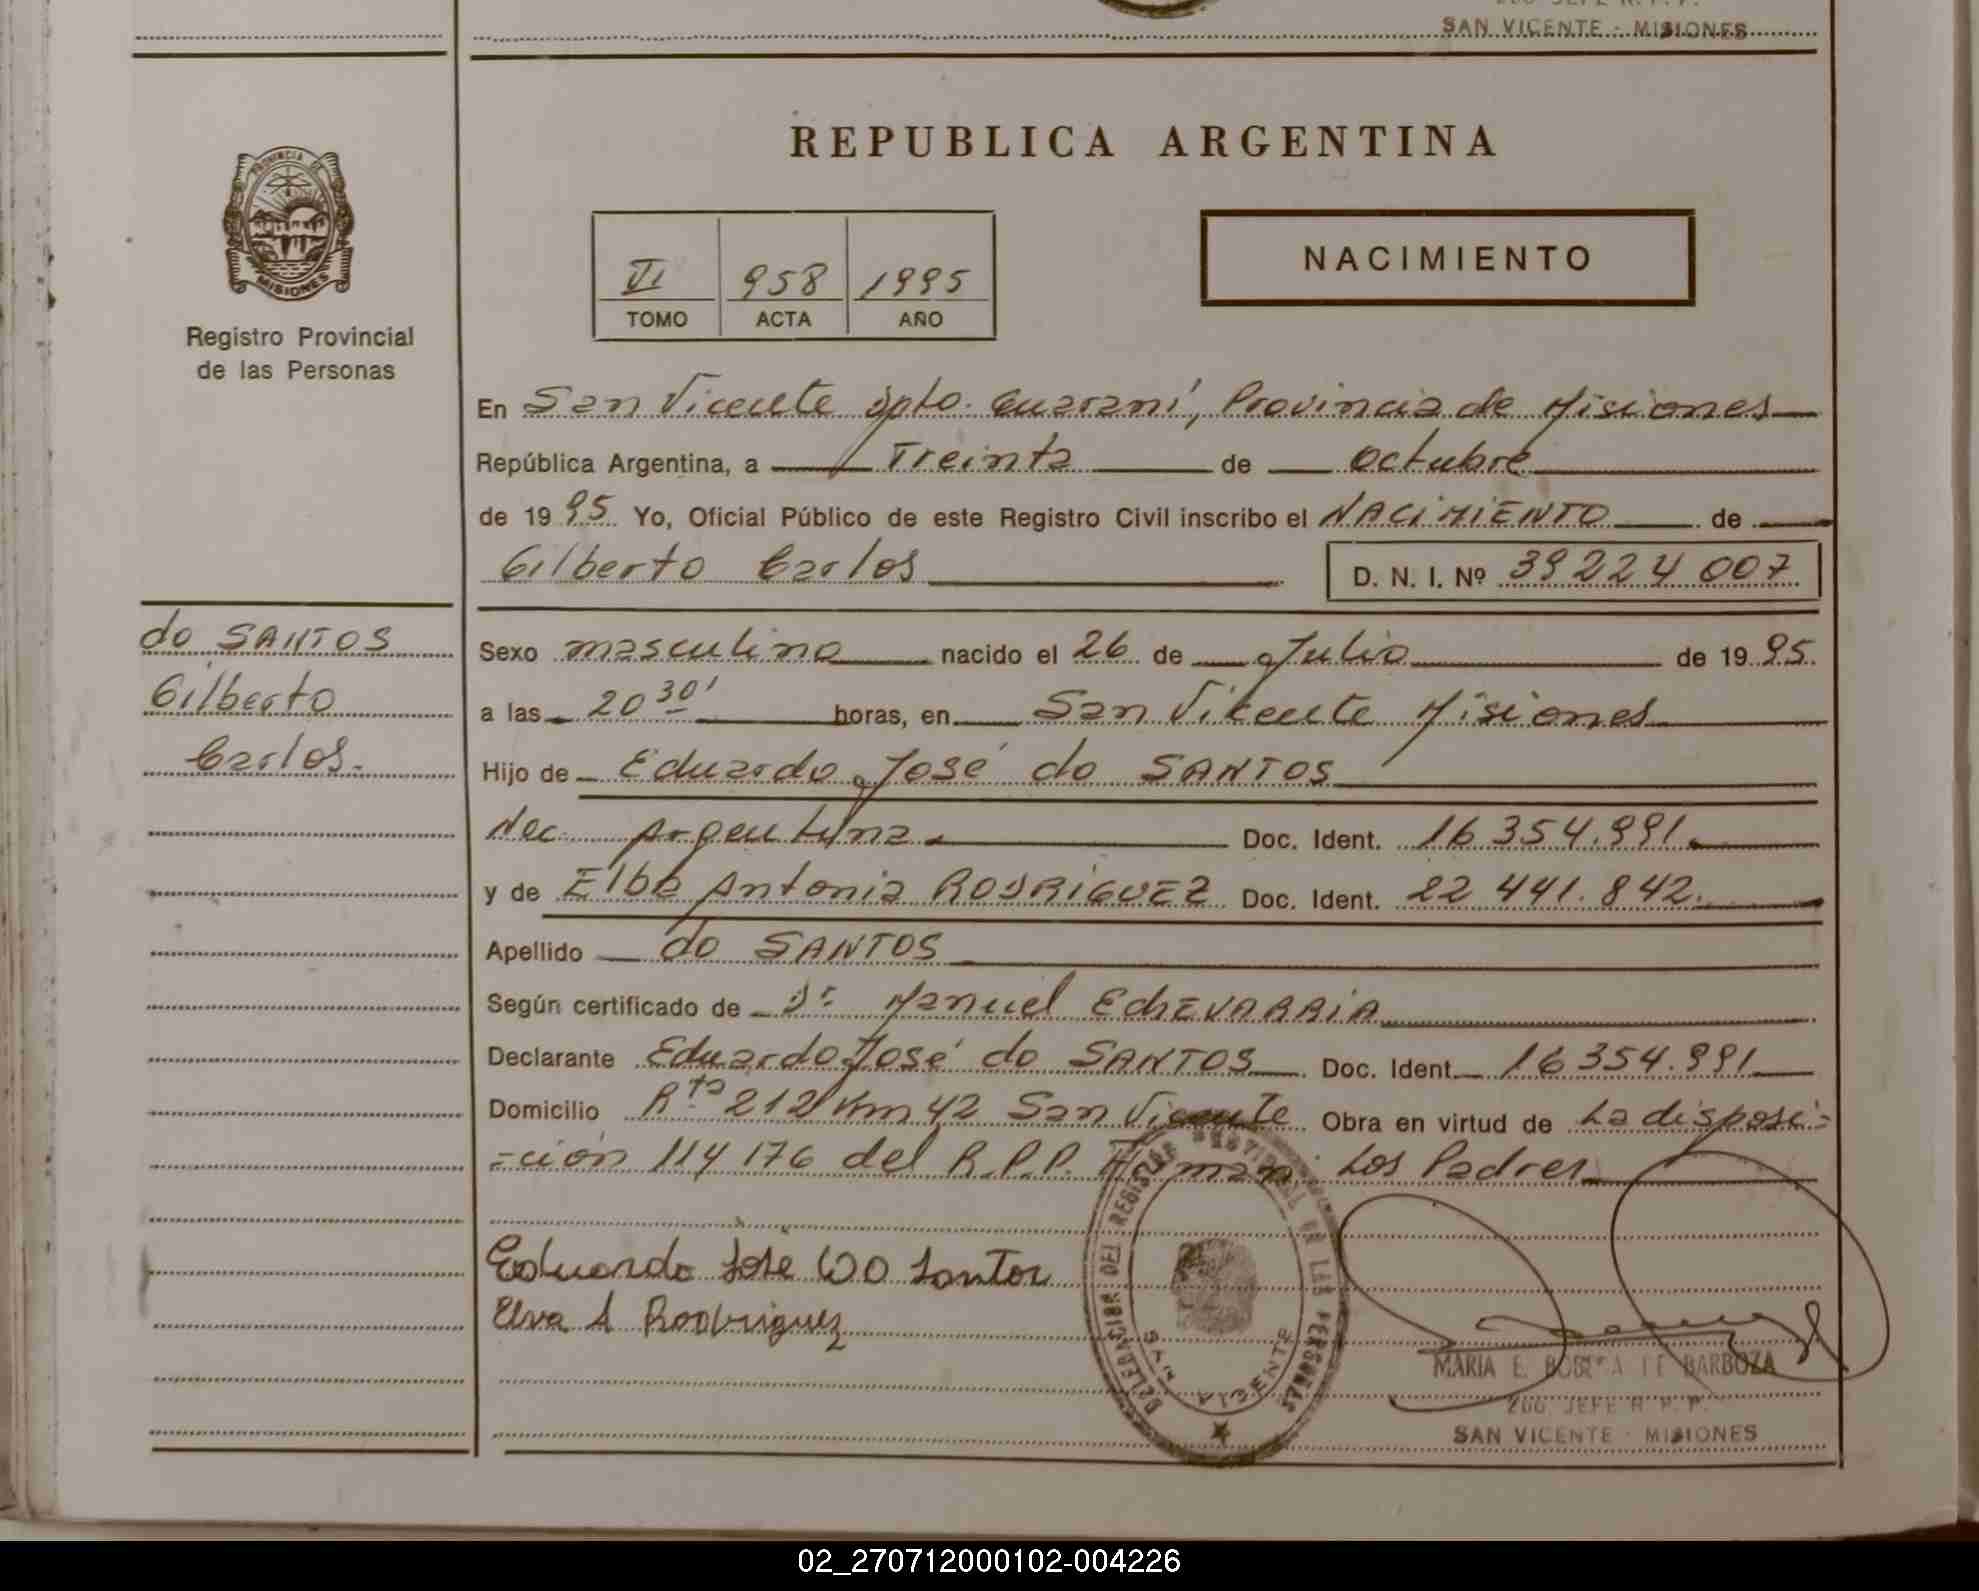 SAN VICENTE - MISIONES
REPUBLICA ARGENTINA
PROVINCIA DE
MISIONES
Registro Provincial
de las Personas
VI 958 1995
TOMO ACTA AÑO
NACIMIENTO
En San Vicente Dpto. Guaraní, Provincia de Misiones
República Argentina, a Treinta de octubre
de 1995 Yo, Oficial Público de este Registro Civil inscribo el NACIMIENTO de
Gilberto Carlos D. N. I. Nº 39224007
do SANTOS
Gilberto
Carlos.
Sexo masculino nacido el 26 de Julio de 1995.
a las 20 30' horas, en San Vicente Misiones
Hijo de Eduardo José do SANTOS
Nac. Argentina Doc. Ident. 16 354.991.
y de Elba Antonia RODRIGUEZ Doc. Ident. 22 441.842.
Apellido do SANTOS
Según certificado de Dr Manuel EchEVARRIA
Declarante Eduardo José do SANTOS Doc. Ident. 16 354.991
Domicilio Rta 212 Km 42 San Vicente Obra en virtud de La disposi=
=ción 114 176 del R.P.P. Firman: Los Padres
Eduardo José DO Santos
Elva A Rodriguez
DELEGACION DEL REGISTRO PROVINCIAL DE LAS PERSONAS
SAN VICENTE
MARIA E. DE BARBOZA
JEFE R. P. P.
SAN VICENTE - MISIONES
02_270712000102-004226